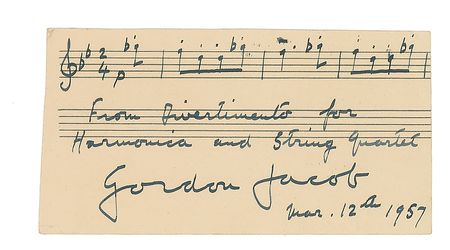 2
4
p
From Divertimento for
Harmonica and String Quartet
Gordon Jacob
Mar. 12th 1957